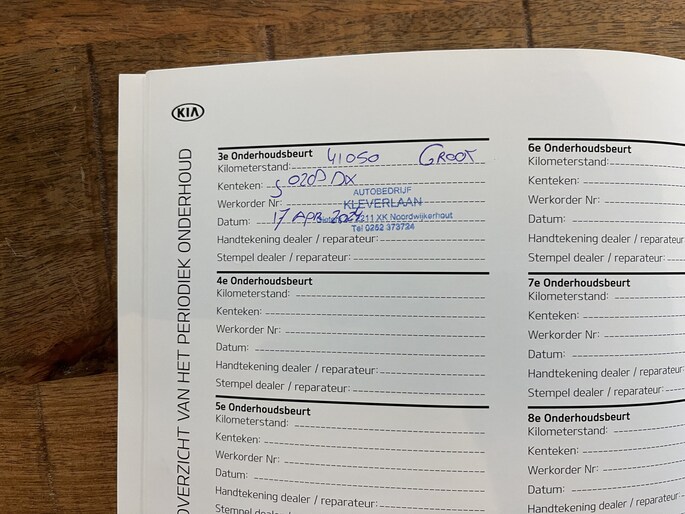 KIA
OVERZICHT VAN HET PERIODIEK ONDERHOUD
3e Onderhoudsbeurt
Kilometerstand: 41050 GROOT
Kenteken:
Werkorder Nr:
Datum: 17 APR 2024
Handtekening dealer / reparateur:
Stempel dealer / reparateur:
AUTOBEDRIJF
KLEVERLAAN
211 XK Noordwijkerhout
Tel 0252 373724
4e Onderhoudsbeurt
Kilometerstand:
Kenteken:
Werkorder Nr:
Datum:
Handtekening dealer / reparateur:
Stempel dealer / reparateur:
5e Onderhoudsbeurt
Kilometerstand:
Kenteken:
Werkorder Nr:
Datum:
Handtekening dealer / reparateur:
Stempel dealer / reparateur:
6e Onderhoudsbeurt
Kilometerstand:
Kenteken:
Werkorder Nr:
Datum:
Handtekening dealer / reparateur:
Stempel dealer / reparateur:
7e Onderhoudsbeurt
Kilometerstand:
Kenteken:
Werkorder Nr:
Datum:
Handtekening dealer / reparateur:
Stempel dealer / reparateur:
8e Onderhoudsbeurt
Kilometerstand:
Kenteken:
Werkorder Nr:
Datum:
Handtekening dealer / reparateur: